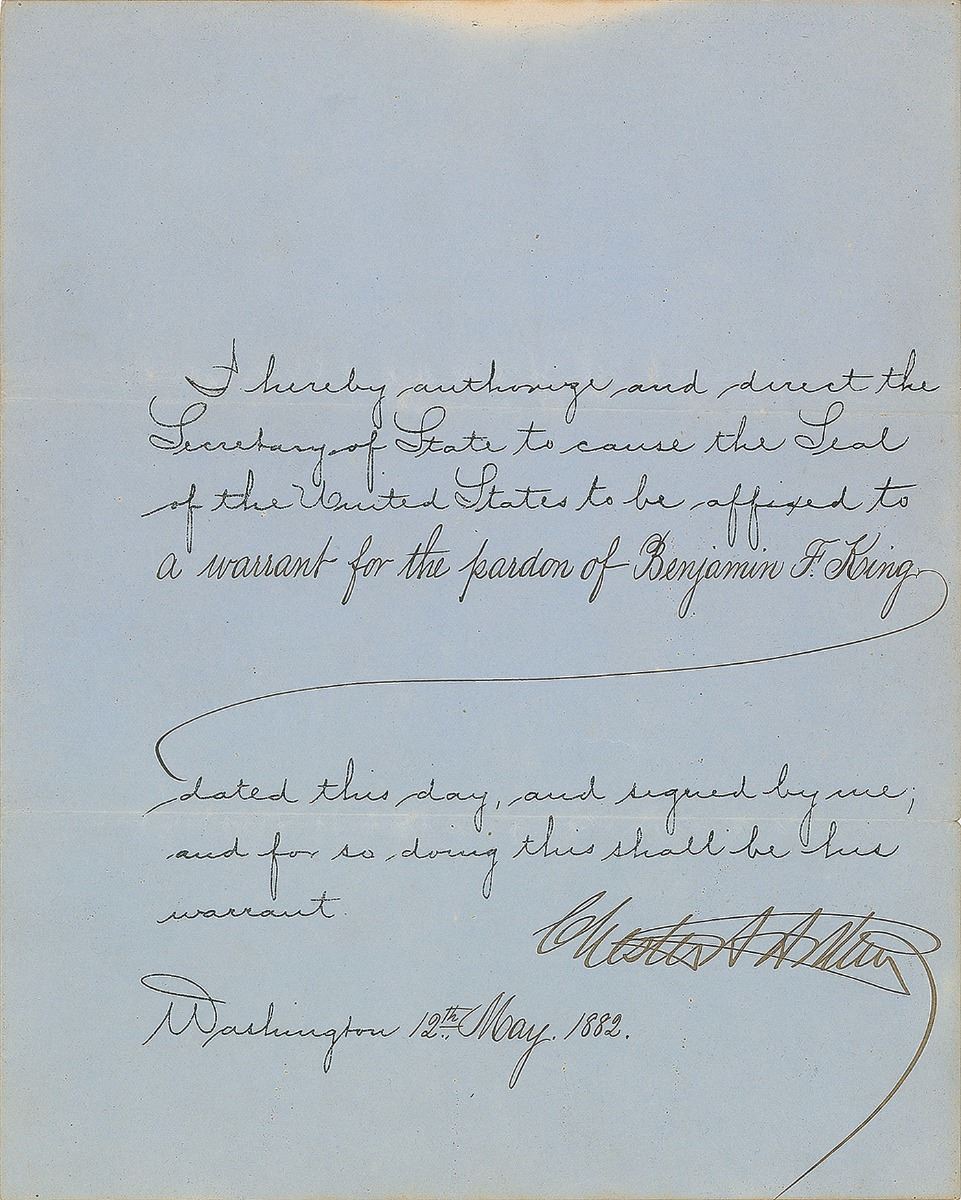 I hereby authorize and direct the
Secretary of State to cause the Seal
of the United States to be affixed to
a warrant for the pardon of Benjamin F. King
dated this day, and signed by me;
and for so doing this shall be his
warrant.
Chester A Arthur
Washington 12th May. 1882.